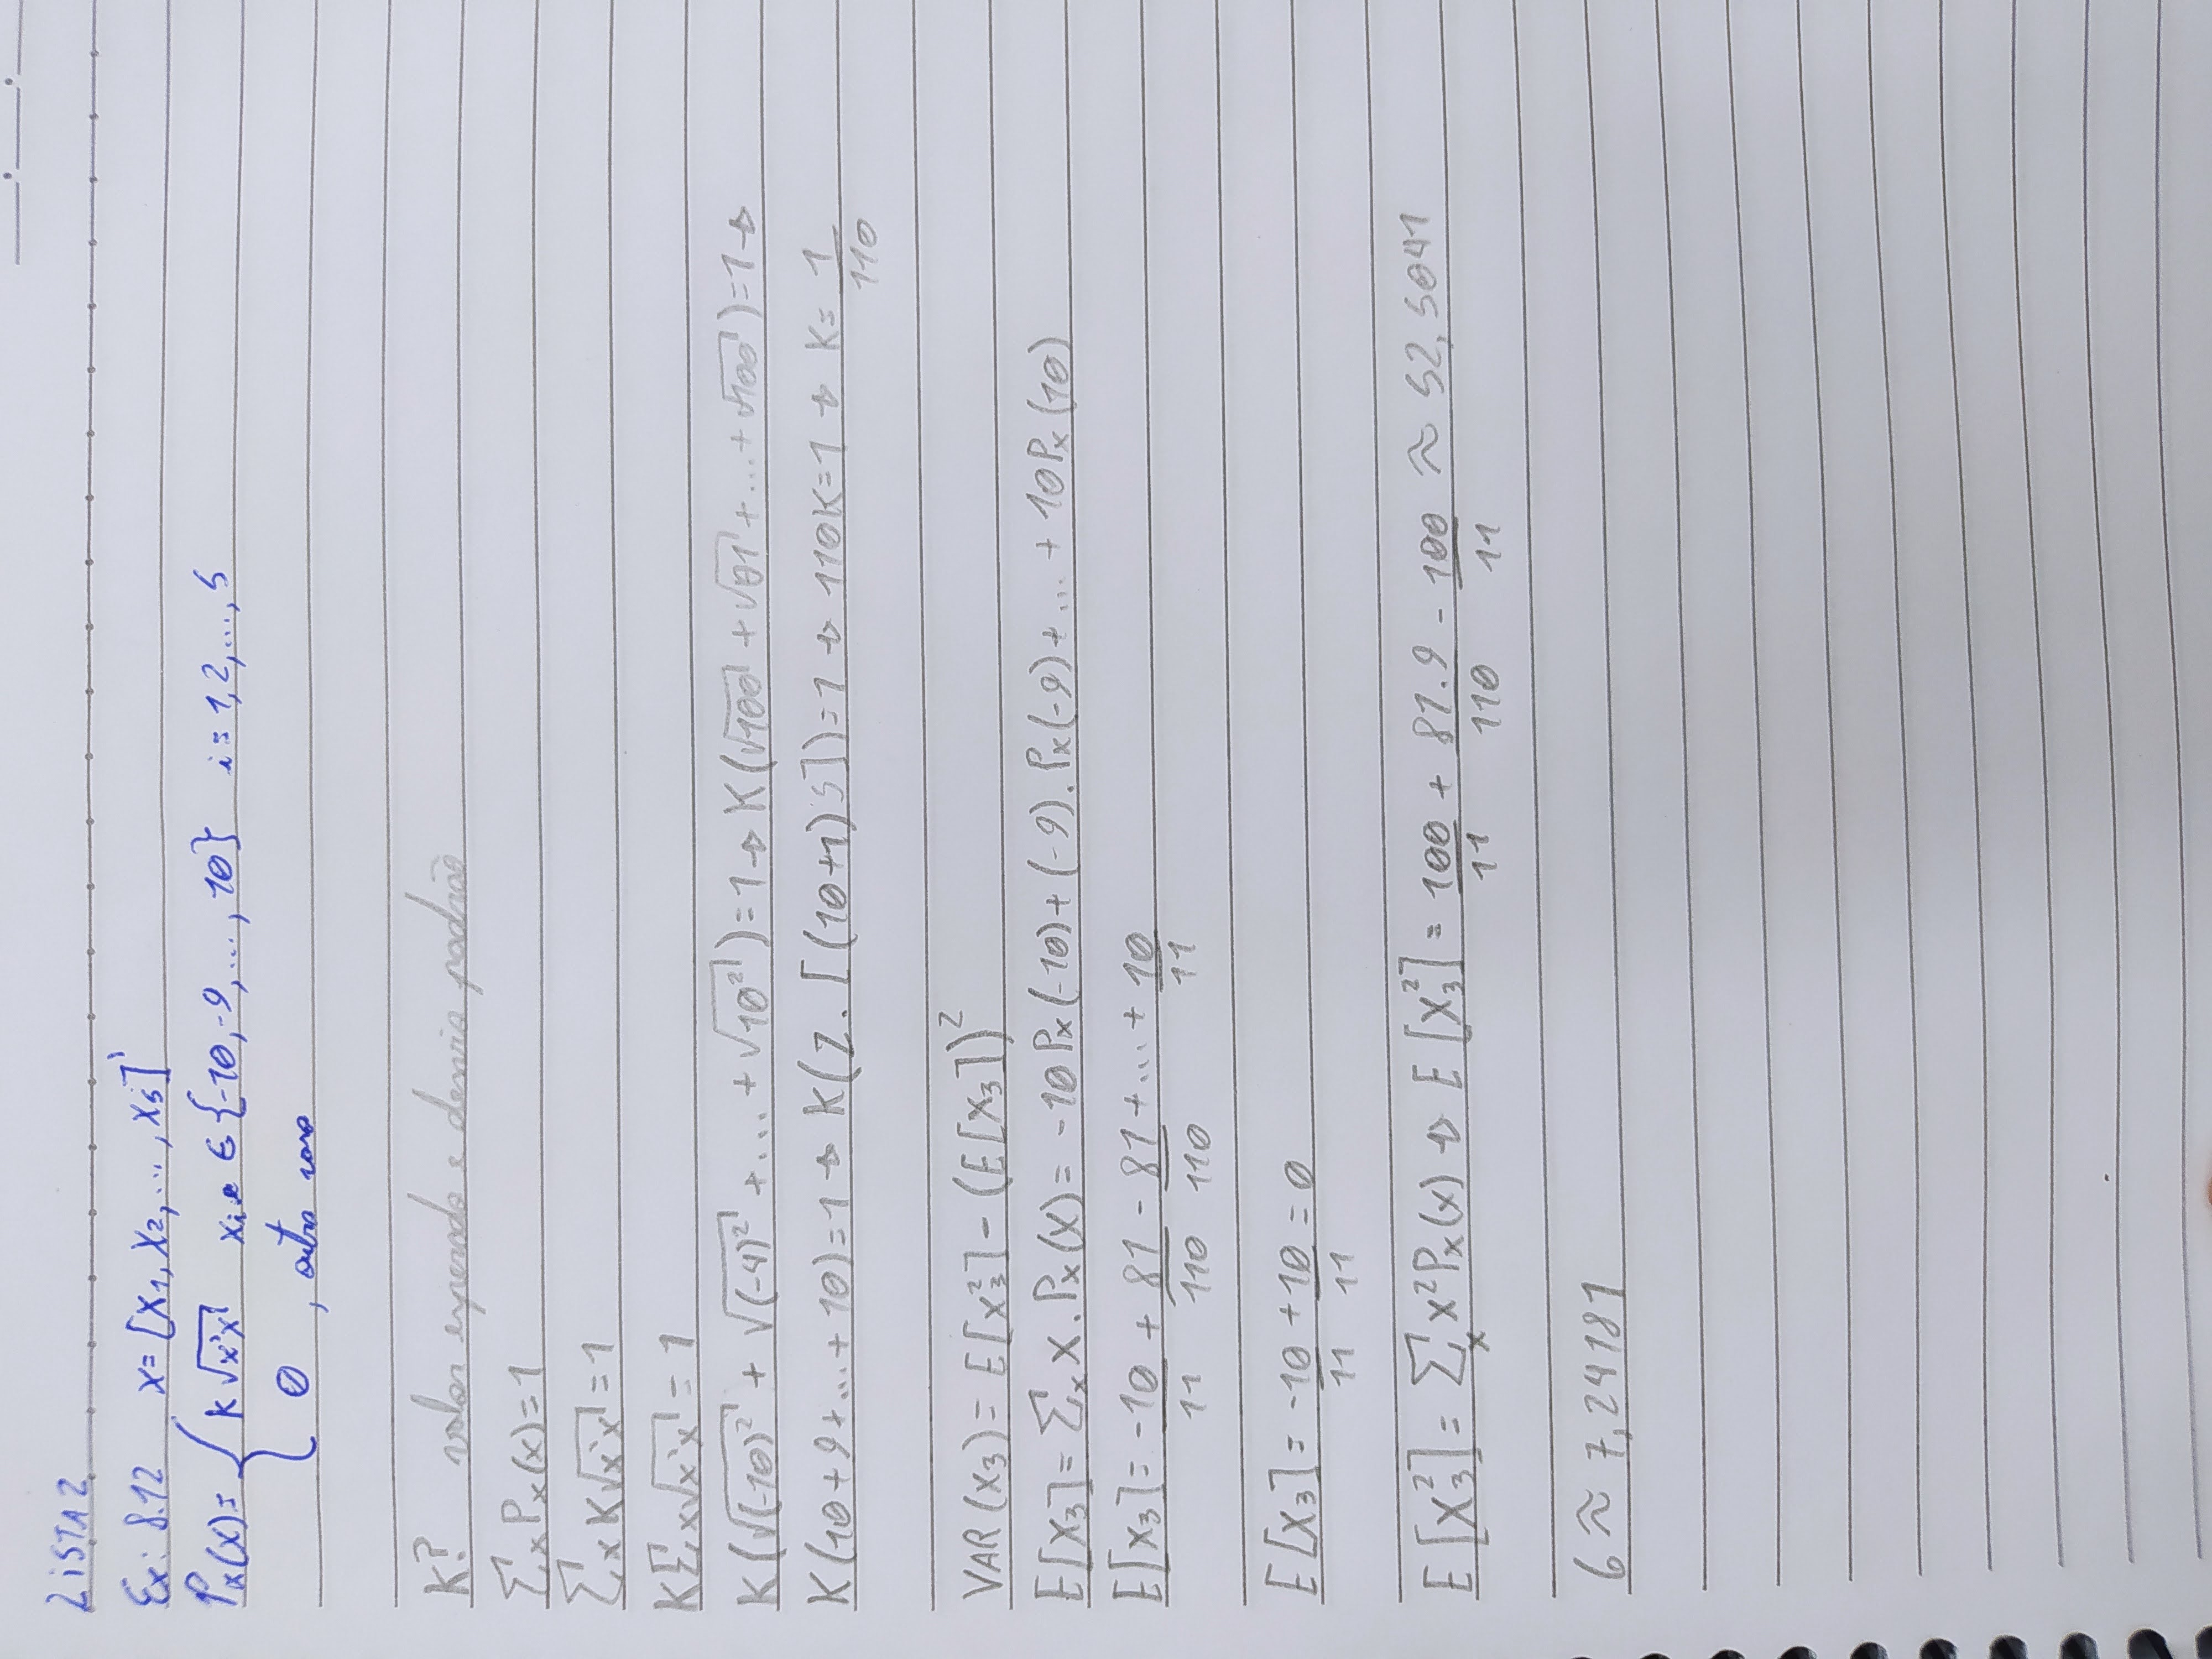 LISTA 2
Ex: 8.12 x = [X1, X2, ..., X5]'
Px(x) = { K √x'x xi ∈ {-10, -9, ..., 10} i = 1, 2, ..., 5
0 , outro caso
K? valor esperado e desvio padrão
Σx Px(x) = 1
Σx K√x'x = 1
KΣx√x'x = 1
K(√(-10)² + √(-9)² + .... + √10²) = 1 → K(√100 + √81 + ... + √100) = 1 →
K(10+9+...+10) = 1 → K(2.[(10+1)5]) = 1 → 110K = 1 → K = 1/110
VAR(X3) = E[X3²] - (E[X3])²
E[X3] = Σx X.Px(X) = -10Px(-10) + (-9).Px(-9) + ... + 10Px(10)
E[X3] = -10/11 + 81/110 - 81/110 + ... + 10/11
E[X3] = -10/11 + 10/11 = 0
E[X3²] = Σx x²Px(x) → E[X3²] = 100/11 + 81.9/110 - 100/11 ≈ 52,5041
6 ≈ 7,24181